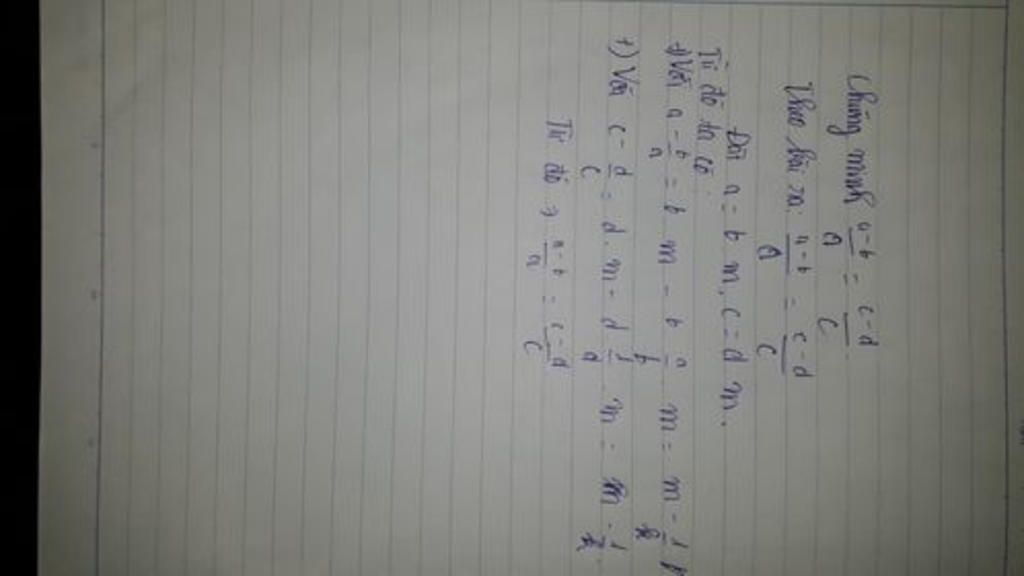 Chứng minh a-b/a = c-d/c
Theo bài ra: a-b/a = c-d/c
Đặt a = b m, c = d m.
Từ đó ta có:
+) Với a-b/a = b m - b a/b m = m - 1
+) Với c-d/c = d. m - d 1/d m = m - 1
Từ đó → a-b/a = c-d/c